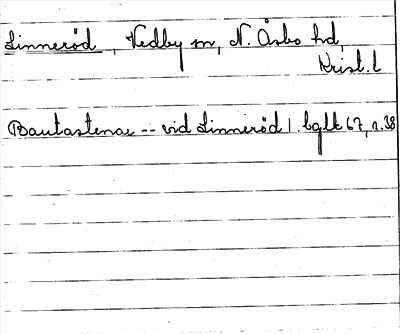 Linneröd, Vedby sn, N. Åsbo hd,
Krist. l
Bautastenar -- vid Linneröd l. bglt 67, n. 38